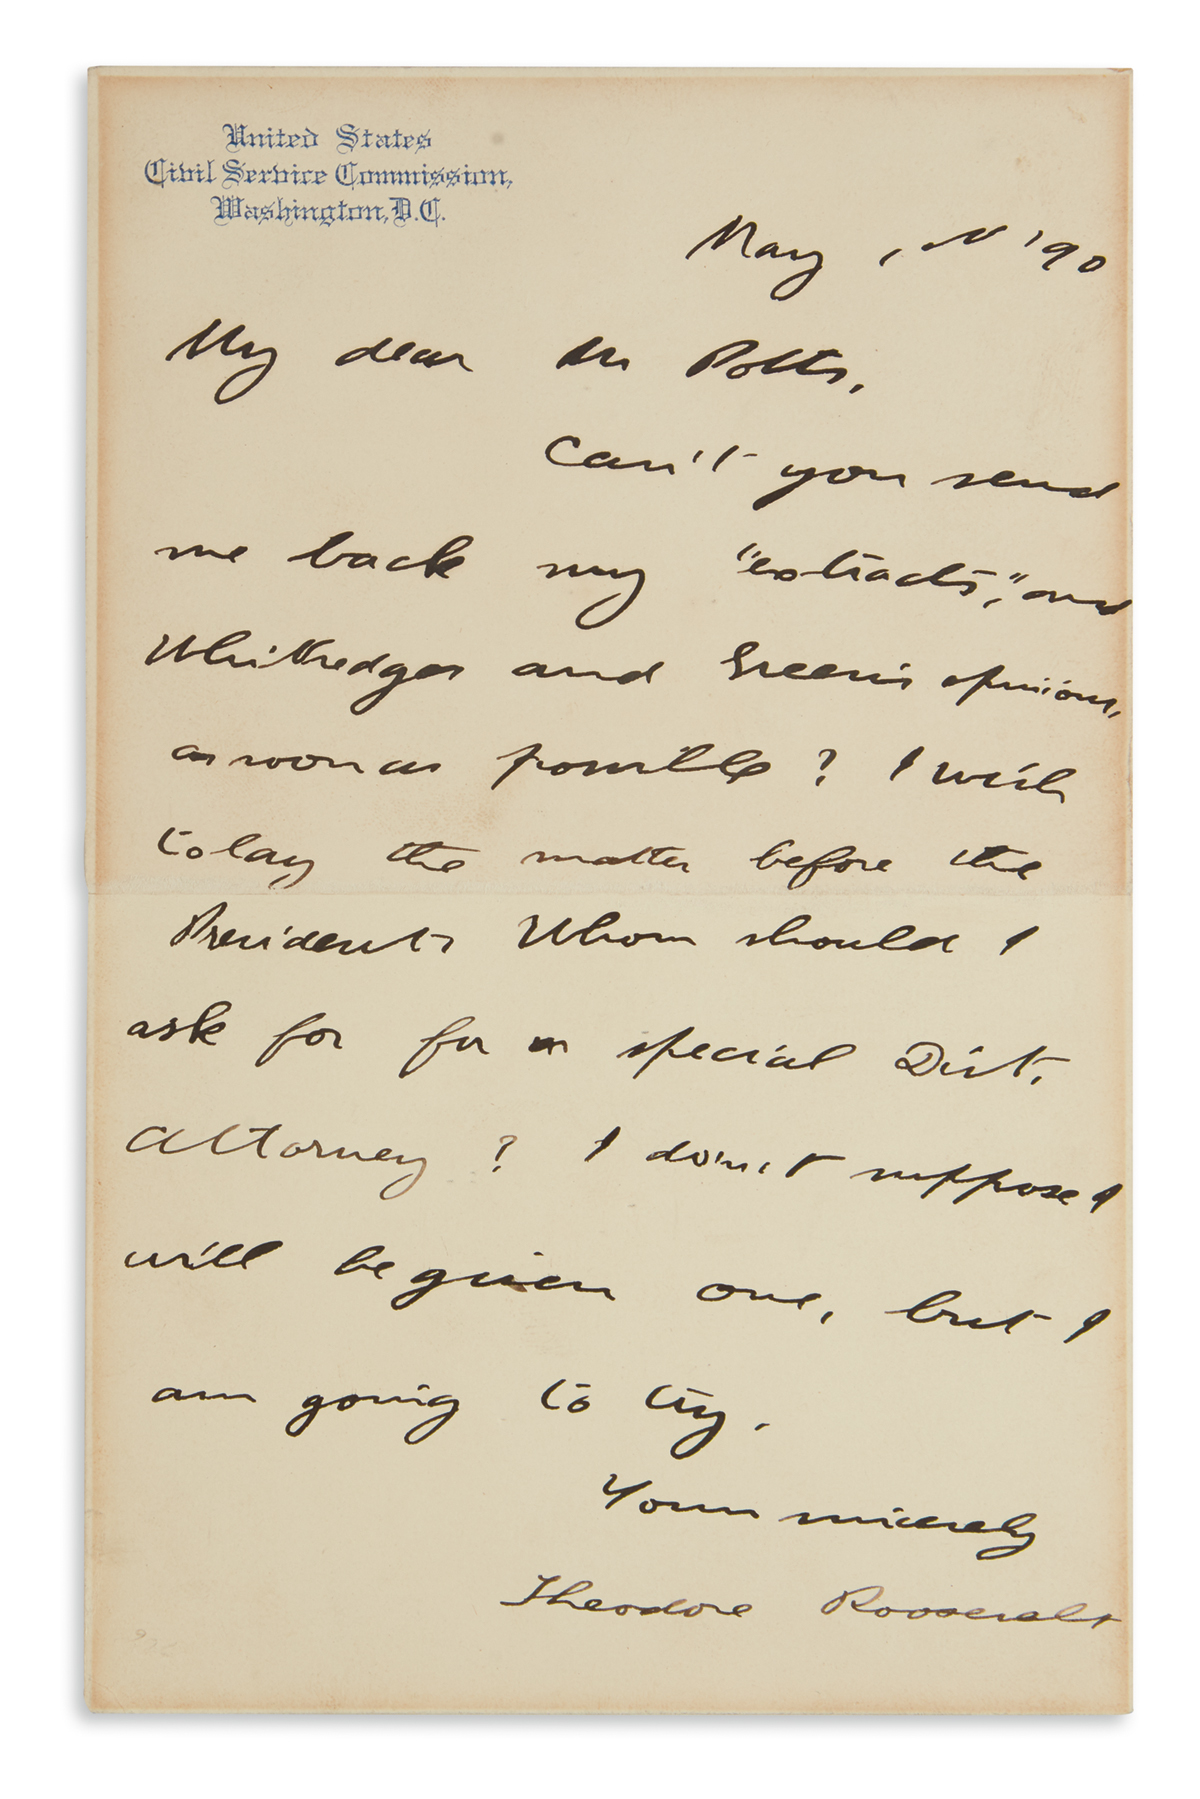 United States
Civil Service Commission,
Washington, D.C.
May , '90
My dear Mr Potts,
Can't you send
me back my "extracts," and
Whitredges and Green's opinions,
as soon as possible ? I wish
to lay the matter before the
President. Whom should I
ask for for a special Dist.
Attorney ? I don't suppose I
will be given one, but I
am going to try.
Yours sincerely
Theodore Roosevelt